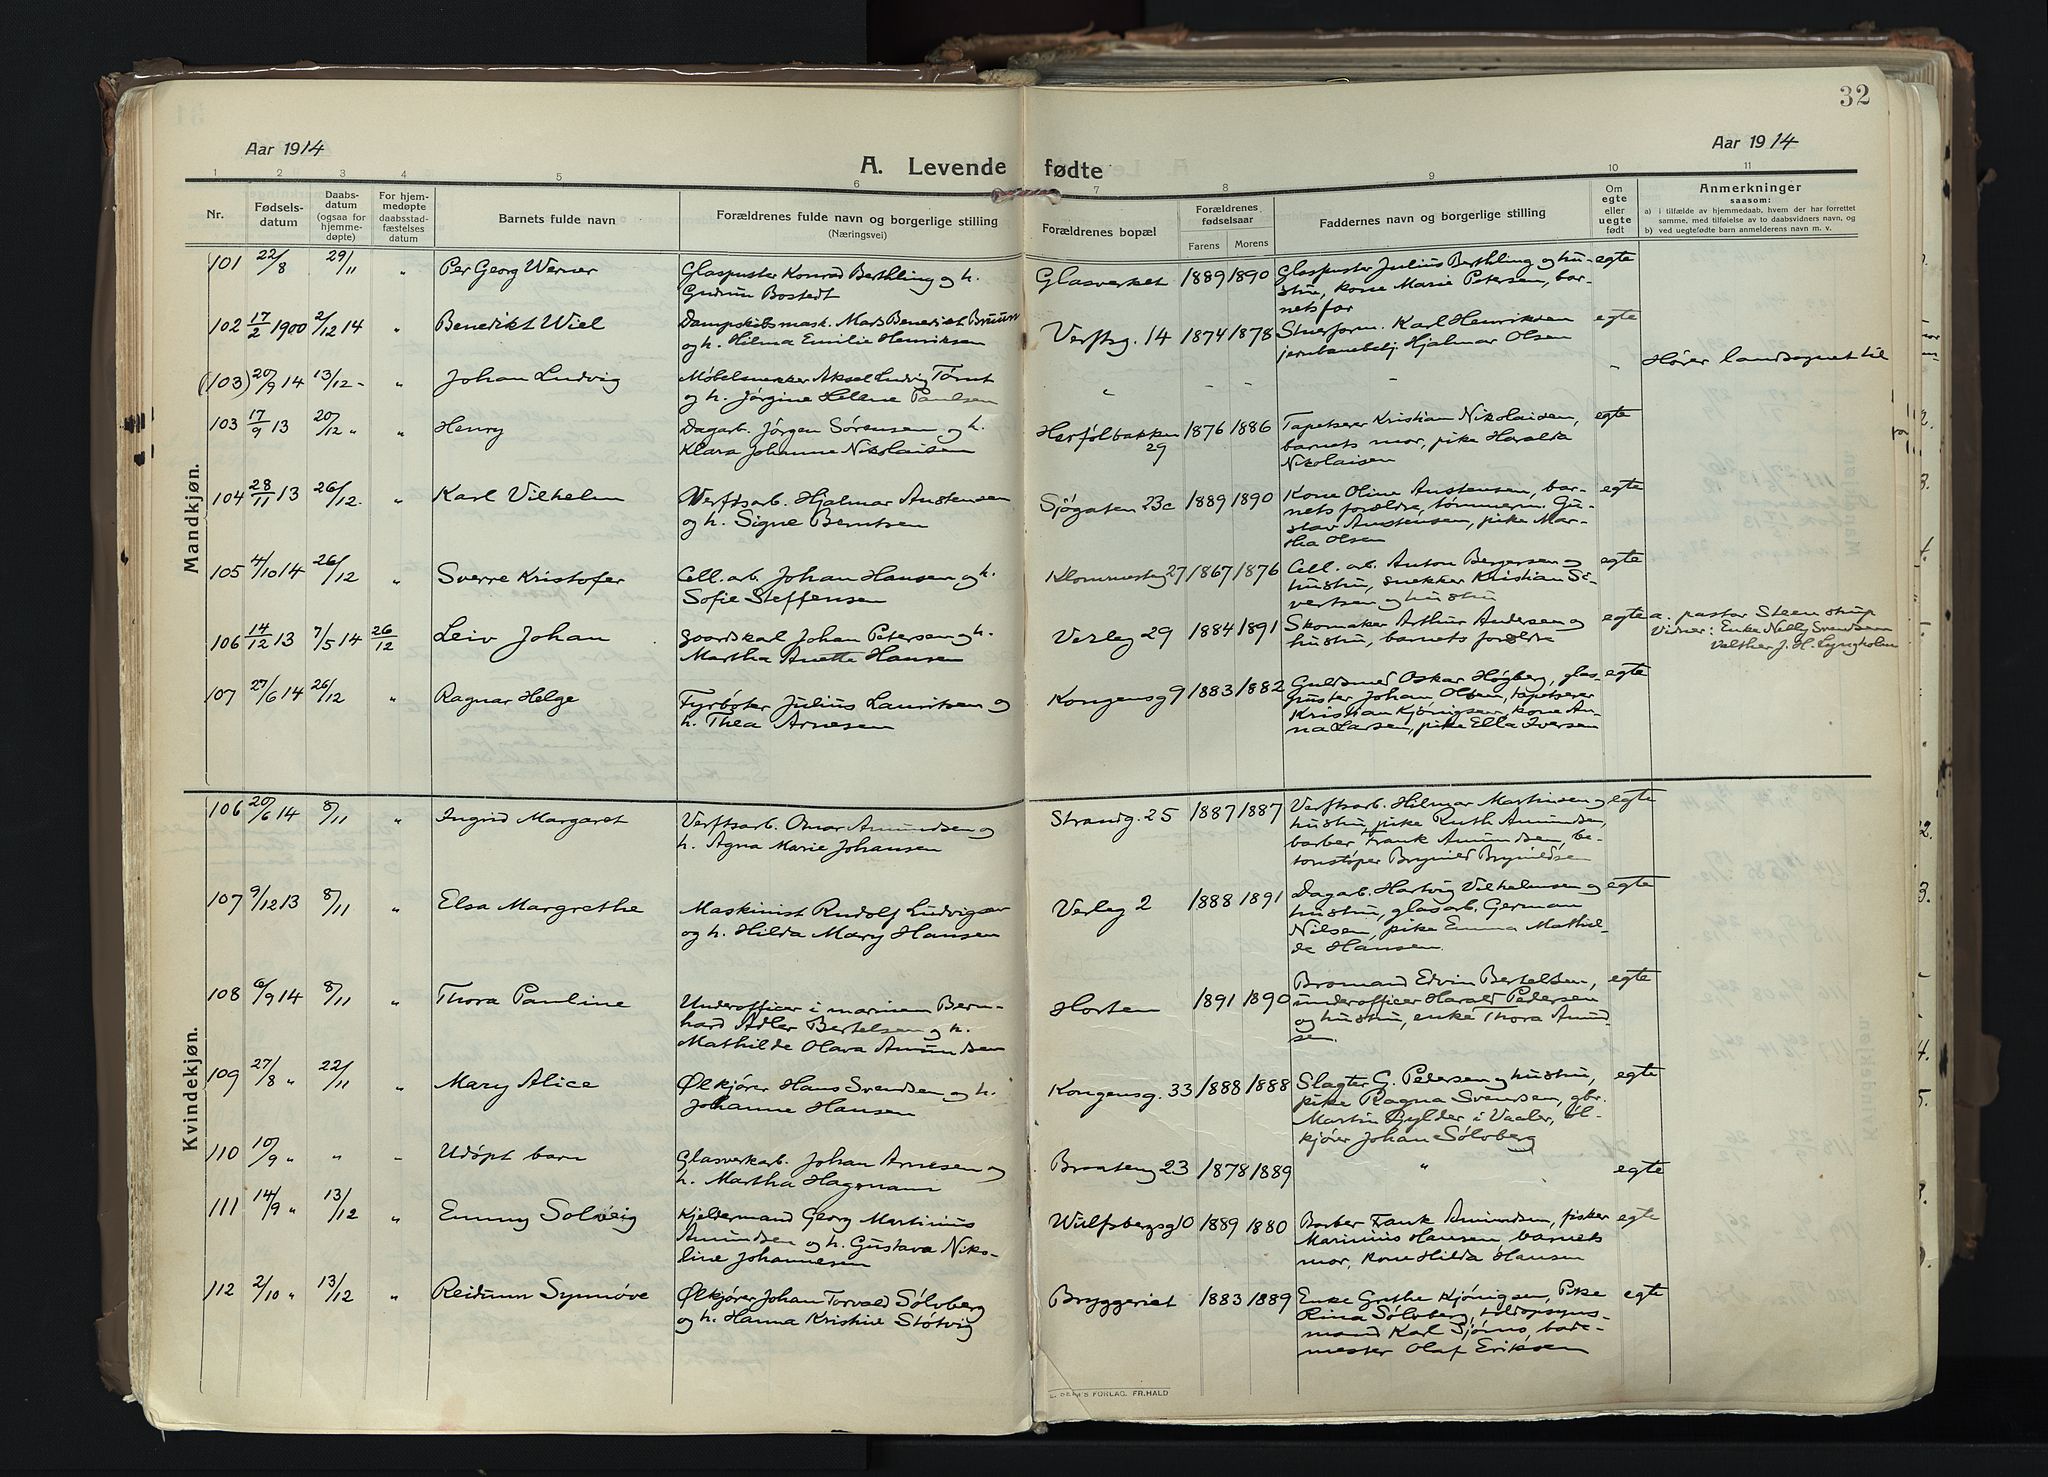 32
Aar 1914
Aar 1914
A. Levende fødte
1 2 3 4 5 6 7 8 9 10 11
Nr.
Fødsels-
datum
Daabs-
datum
(ogsaa for
hjemme-
døpte)
For hjem-
medøpte
daabsstad-
fæstelses
datum
Barnets fulde navn
Forældrenes fulde navn og borgerlige stilling
(Næringsvei)
Forældrenes bopæl
Forældrenes
fødselsaar
Farens Morens
Faddernes navn og borgerlige stilling
Om
egte
eller
uegte
født
Anmerkninger
saasom:
a) i tilfælde av hjemmedaab, hvem der har forrettet
samme, med tilføielse av to daabsvidners navn, og
b) ved uegtefødte barn anmelderens navn m. v.
Mandkjøn.
101 22/8 29/11 " Per Georg Werner
Glaspuster Konrad Berthling og h.
Gudrun Bostedt
Glasverket 1889 1890
Glaspuster Julius Berthling og hu-
stru, kone Marie Petersen, bar-
nets far
egte
102 17/2 1900 2/12 14 " Benedikt Wiel
Dampskibsmask. Mads Benedict Bruun
og h. Hilma Emilie Henriksen
Verftsg. 14 1874 1878
Stuerform. Karl Henriksen
jernbanebetj. Hjalmar Olsen
egte
(103) 20/9 14 13/12 - " Johan Ludvig
Møbelsnekker Aksel Ludvig Tørnt
og h. Jørgine Helene Paulsen
" - - - "
Hører landsognet til
103 17/9 13 20/12 " " Henry
Dagarb. Jörgen Sörensen og h.
Klara Johanne Nikolaisen
Herfölbakken 29 1876 1886
Tapetserer Kristian Nikolaisen,
barnets mor, pike Haralda
Nikolaisen
egte
104 28/11 13 26/12 - " Karl Vilhelm
Verftsarb. Hjalmar Anstensen
og h. Signe Berntsen
Sjögaten 23c 1889 1890
Kone Oline Anstensen, bar-
nets forældre, tømmerm. Gu-
stav Anstensen, pike Mar-
tha Olsen
egte
105 4/10 14 26/12 " Sverre Kristofer
Cell. arb. Johan Hansen og h.
Sofie Steffensen
27 1867 1876
Cell. arb. Anton Bergersen og
hustru, snekker Kristian Si-
vertsen og hustru
egte
106 14/12 13 7/5 14 26/12 Leiv Johan
Gaardskal Johan Petersen og h.
Martha Anette Hansen
Verleg 29 1884 1891
Skomaker Arthur Andersen og
hustru, barnets forældre
egte
a. pastor Steenstrup
Vidner: Enke Nelly Svendsen
Valther J. H. Lyngholm
107 27/6 14 26/12 " Ragnar Helge
Fyrböter Julius Lauritsen og
h. Thea Arnesen
Kongensg 9 1883 1882
Guldsmed Oskar Högberg, glas-
puster Johan Olsen, tapetserer
Kristian Kjönigsen, kone An-
na Larsen, pike Ella Iversen
egte
Kvindekjøn.
106 20/6 14 8/11 " Ingrid Margaret
Verftsarb. Omar Amundsen og
h. Agna Marie Johansen
Strandg. 25 1887 1887
Verftsarb. Hilmar Martinsen og
hustru, pike Ruth Amundsen,
barber Frank Amundsen, be-
tonstöper Brynild Brynildsen
egte
107 9/12 13 8/11 " Elsa Margrethe
Maskinist Rudolf Ludvigsen
og h. Hilda Mary Hansen
Verleg 2 1888 1891
Dagarb. Hartvig Vilhelmsen og
hustru, glasarb. German
Nilsen, pike Emma Mathil-
de Hansen.
egte
108 6/9 14 8/11 " Thora Pauline
Underofficer i marinen Bern-
hard Adler Bertelsen og h.
Mathilde Olava Amundsen
Horten 1891 1890
Bromand Edvin Bertelsen,
underofficer Harald Pedersen
og hustru, enke Thora Amund-
sen.
egte
109 27/8 " 22/11 " Mary Alice
Ølkjører Hans Svendsen og h.
Johanne Hansen
Kongensg. 33 1888 1888
Slagter G. Pedersen og hustru,
pike Ragna Svensen, gbr.
Martin Gylder i Vaaler, öl-
kjörer Johan Sölvberg
egte
110 10/9 " " - Udöpt barn
Glasverkarb. Johan Arnesen og
h. Martha Hagemann
Braateng 23 1878 1889 " egte
111 14/9 " 13/12 " Emmy Solveig
Kjeldermand Georg Martinius
Amundsen og h. Gustava Niko-
line Johannesen
Wulfsbergsg 10 1889 1880
Barber Frank Amundsen, fisker
Marinius Hansen, barnets
mor, kone Hilda Hansen
egte
112 2/10 " 13/12 " Reidunn Synnöve
Ølkjörer Johan Torvald Sölvberg
og h. Hanna Kristine Støtvig
Bryggeriet 1883 1889
Enke Grethe Kjönigsen, Pike
Rina Sölvberg, toldopsyns-
mand Karl Sjöms, bade-
mester Olaf Eriksen
egte
FORLAG. FR.HALD